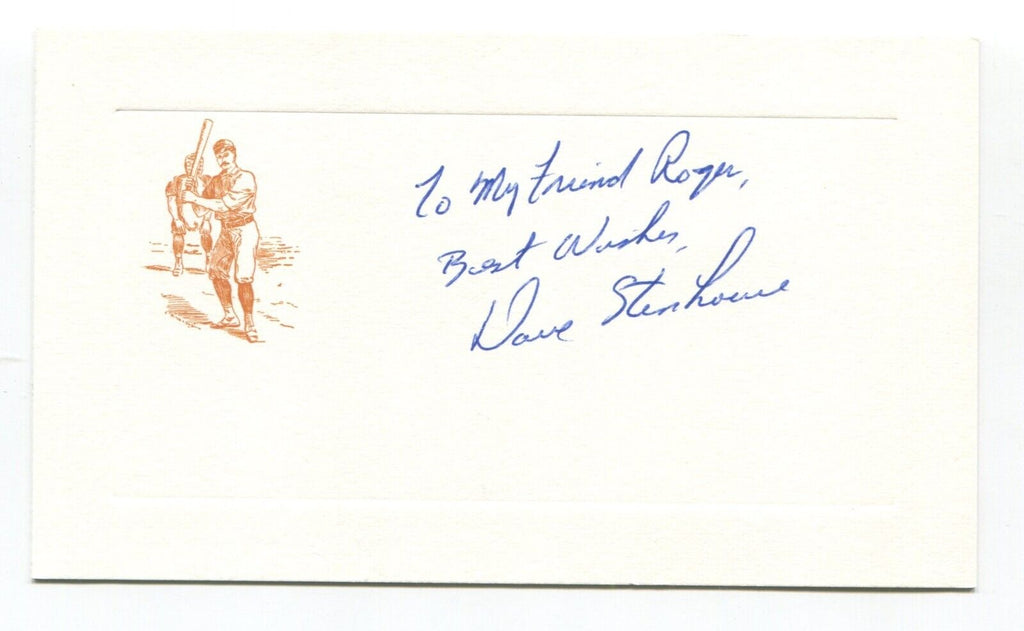 To My Friend Roger,
Best Wishes,
Dave Stenhouse